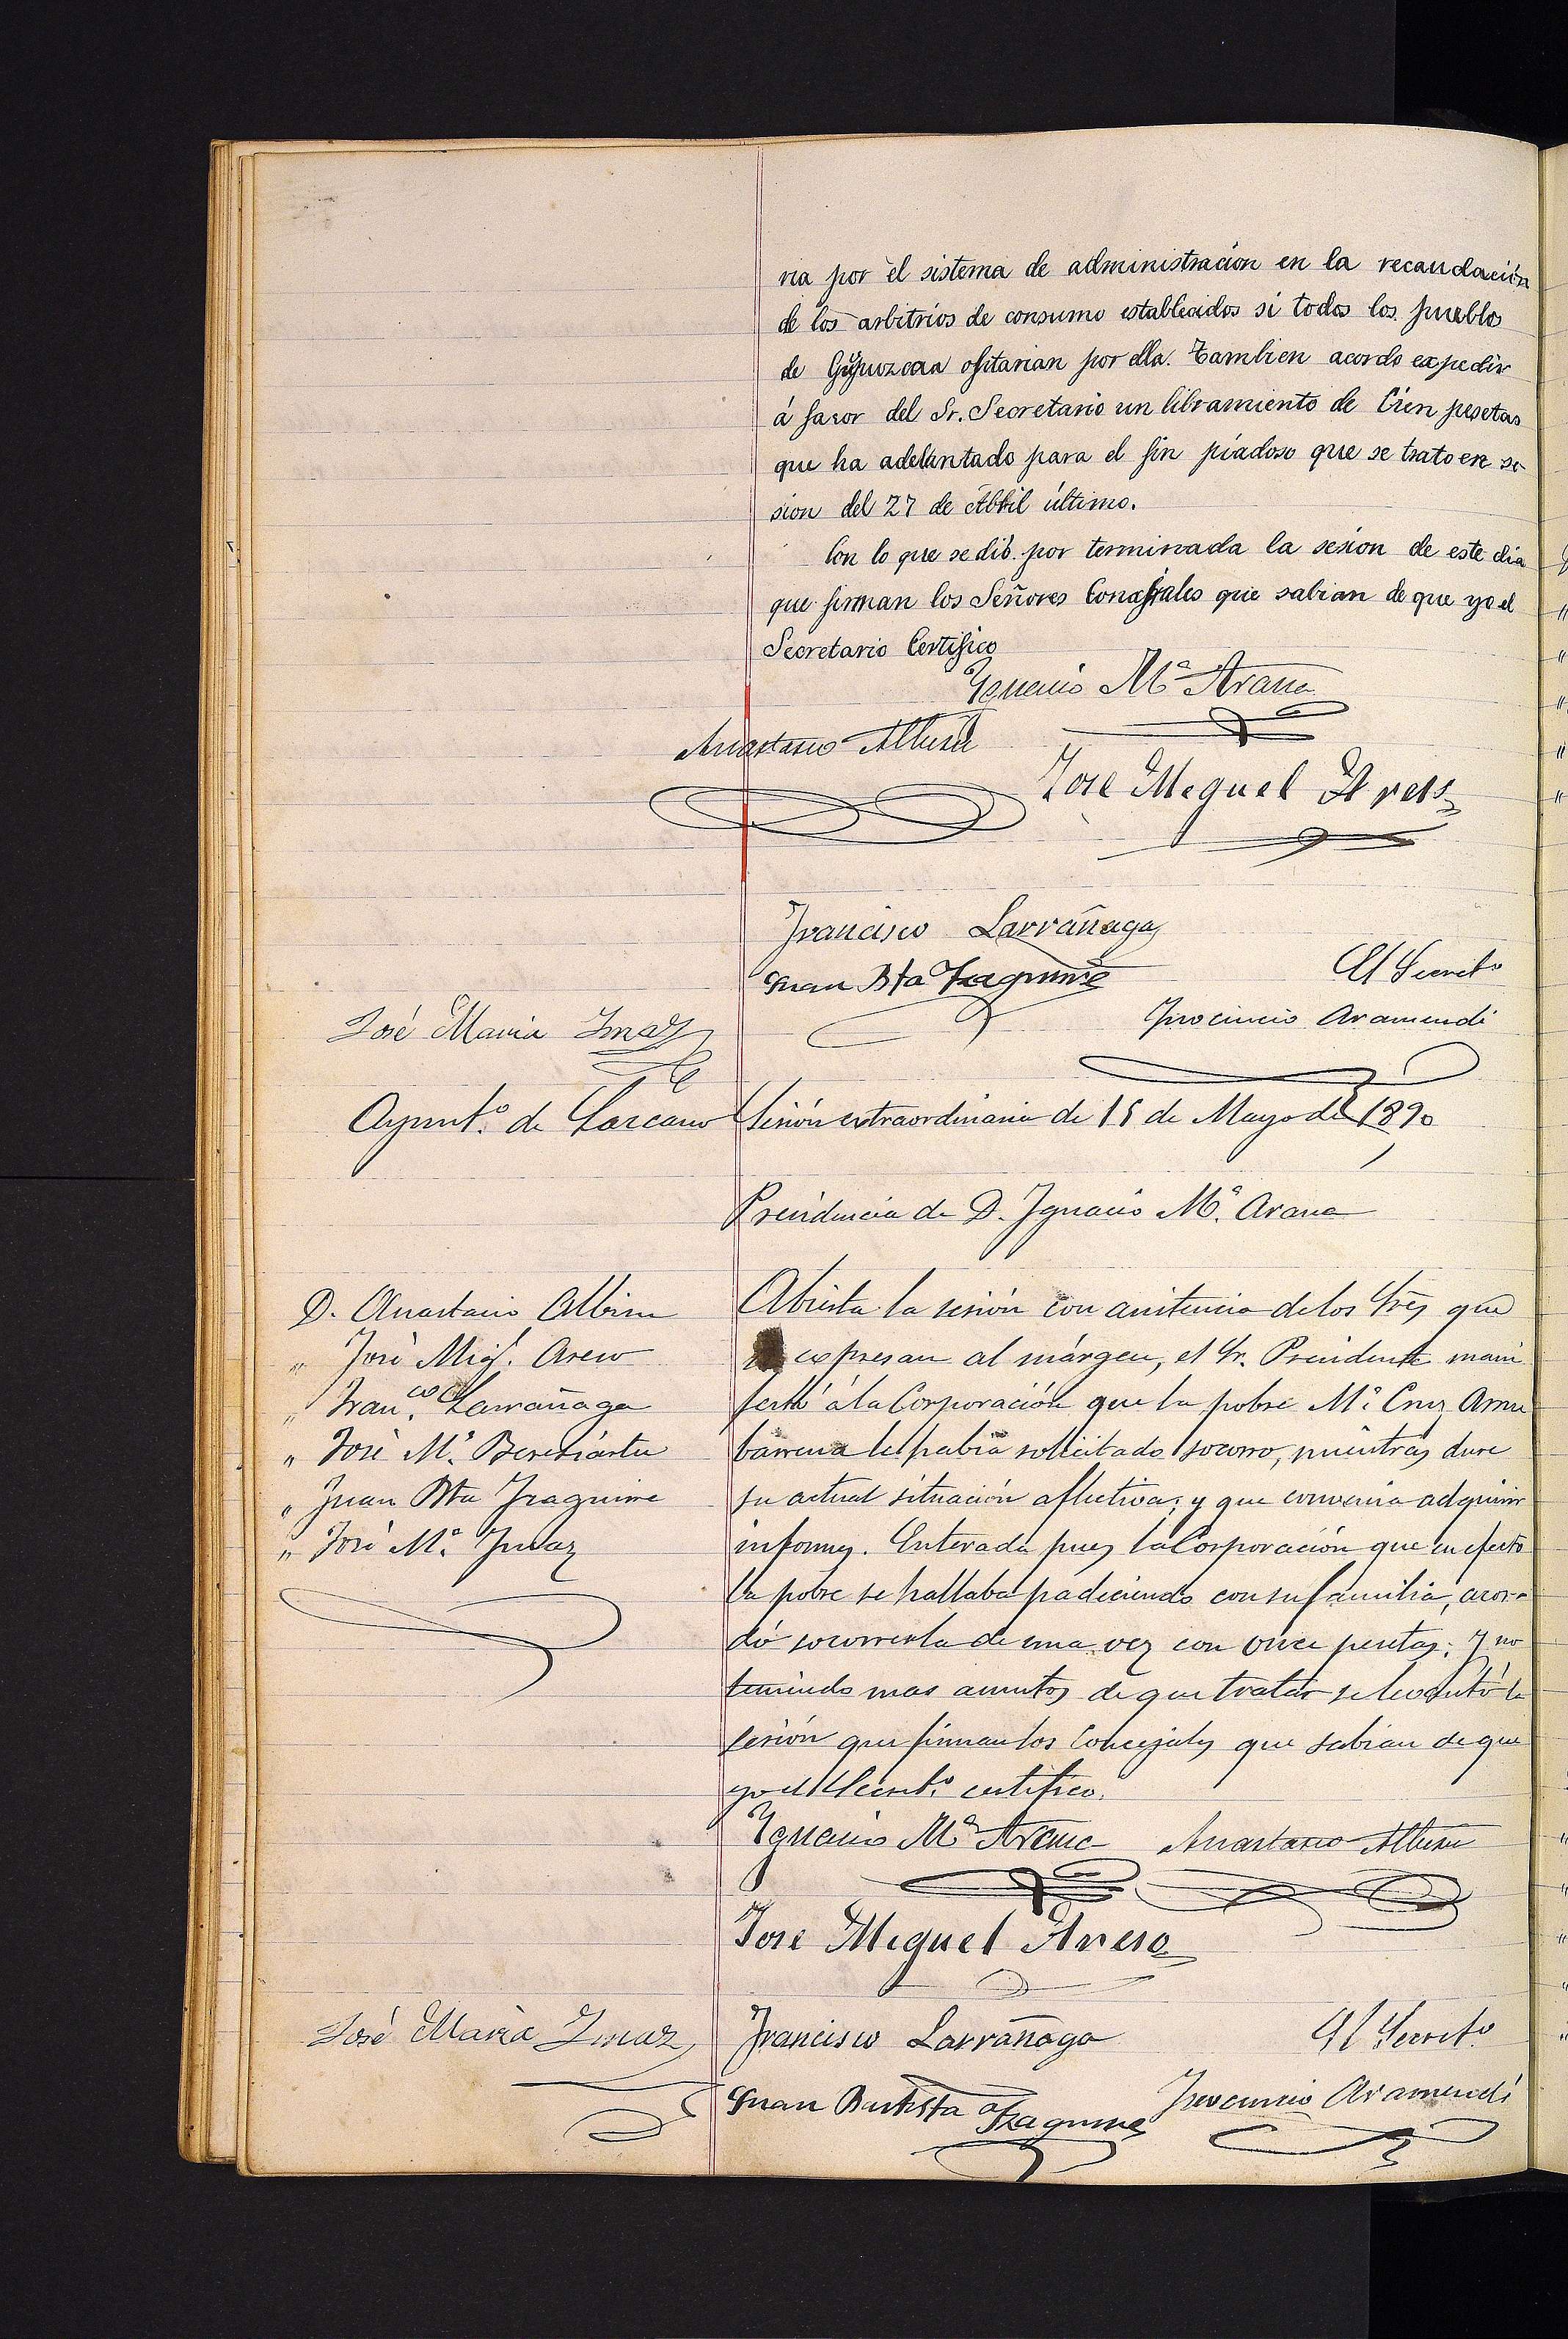 ria por el sistema de administracion en la recaudación
de los arbitrios de consumo establecidos si todos los pueblos
de Guipuzcoa optarian por ella. Tambien acordo expedir
á favor del Sr. Secretario un libramiento de Cien pesetas
que ha adelantado para el fin piadoso que se trato en se-
sion del 27 de Abril último.
Con lo que se dió por terminada la sesion de este dia
que firman los Señores Concejales que sabian de que yo el
Secretario Certifico
Ygnacio Mª Arana
Anastasio Albisu
Jose Meguel Areso
Francisco Larrañaga
Juan Bta Yzaguirre
El Secretº
José Maria Imaz
Ynocencio Aramendi
Ayuntº. de Lazcano
Sesión extraordinaria de 15 de Mayo de 1890
Presidencia de D. Ygnacio Mª. Arana
D. Anastasio Albisu
" José Migl. Areso
" Franco. Larrañaga
" José Mª. Bereciartu
" Juan Bta Yzaguirre
" José Mª. Ymaz
Abierta la sesión con asistencia de los Sres que
expresan al márgen, el Sr. Presidente mani
festó á la Corporación que la pobre Mª. Cruz Arru
barrena le habia solicitado socorro, mientras dure
su actual situación aflictiva; y que convenia adquirir
informes. Enterada pues la Corporación que en efecto
la pobre se hallaba padeciendo con su familia, acor-
dó socorrerla de una vez con once pesetas. Y no
teniendo mas asuntos de que tratar se levantó la
sesión que firman los Concejales que sabian de que
yo el Secretº. certifico.
Ygnacio Mª Arana Anastasio Albisu
Jose Meguel Areso
José Maria Imaz
Francisco Larrañaga
El Secretº
Juan Bautista Yzaguirre
Ynocencio Aramendi